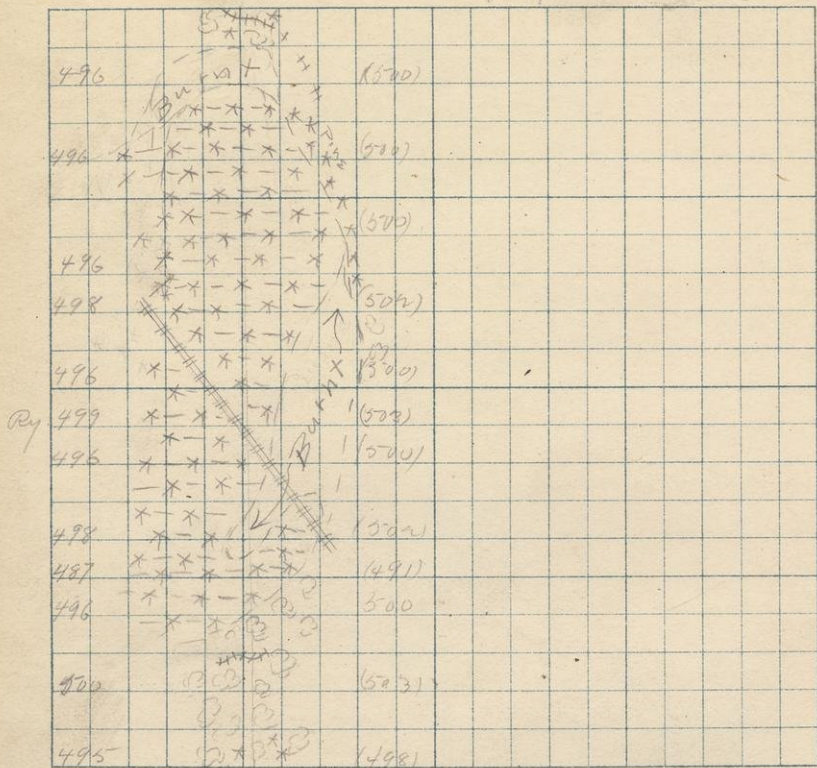 496 (500)
Burnt
496 (500)
(500)
496
498 (502)
496 (500)
Ry 499 (503)
Burnt
496 (500)
498 (502)
487 (491)
496 500
500 (503)
495 (498)